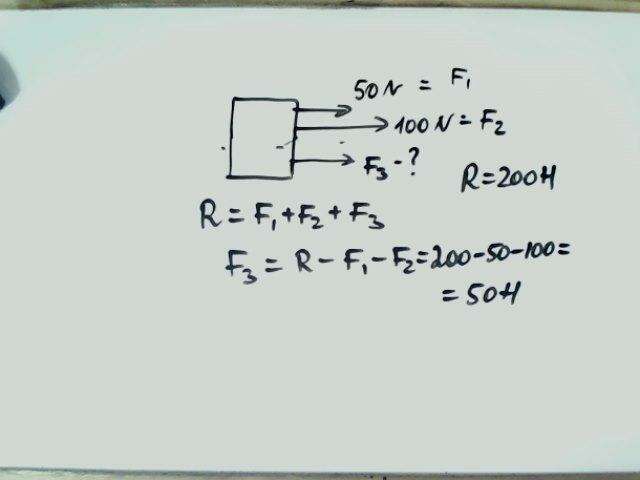 50 N = F₁
100 N = F₂
F₃ - ?
R = 200H
R = F₁ + F₂ + F₃
F₃ = R - F₁ - F₂ = 200 - 50 - 100 =
= 50H